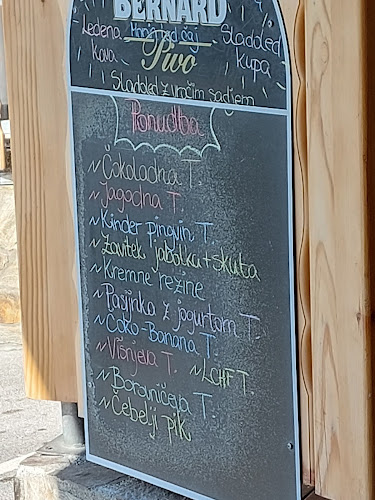 BERNARD
Ledena Hladni čaj Sladoled
kava Pivo kupa
Sladoled z vročim sadjem
Ponudba
~Čokoladna T.
~Jagodna T.
~Kinder pingvin T.
~Zavitek jabolku+skuta
~Kremne rezine
~Pasjinka z jogurtom T.
~Čoko-Banana T.
~Višnjeva T. ~LCHF T.
~Borovničeva T.
~Čebelji pik